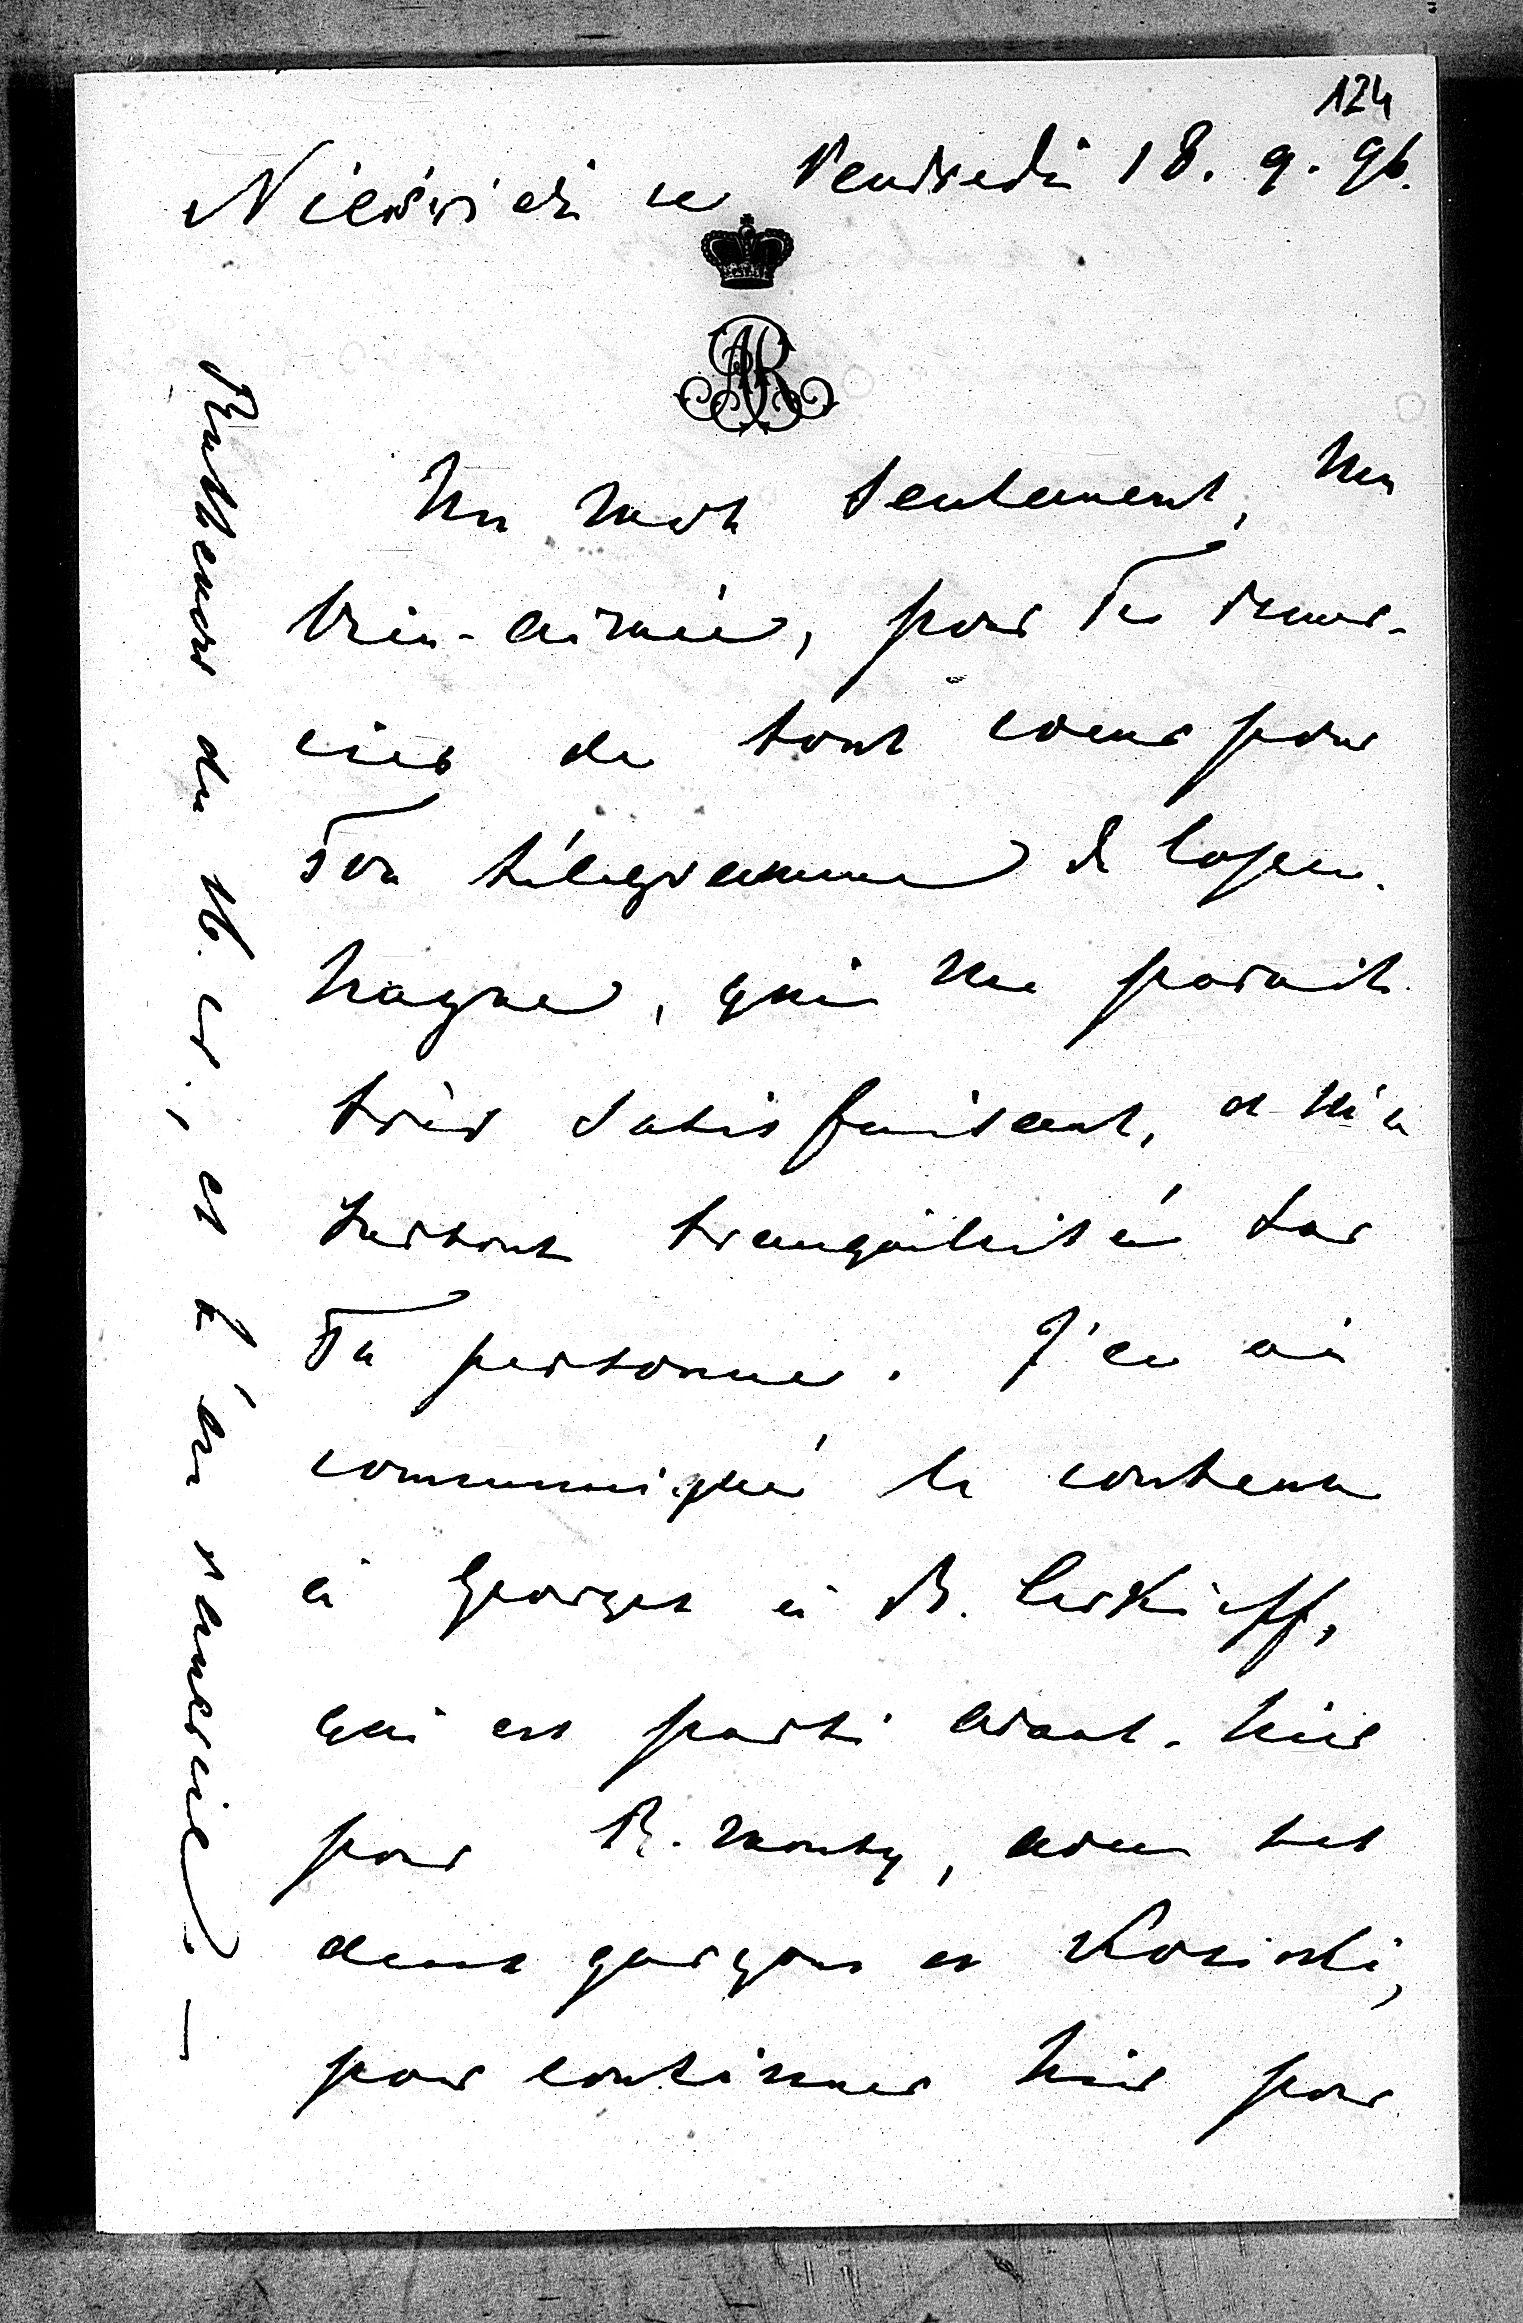 124
Nieśwież ce Vendredi 18. 9. 96.
AR
Un mot seulement, ma
bien-aimée, pour Te remer-
cier de tout coeur pour
Ton télégramme de Copen-
hague, qui me parait
très satisfaisant, et m'a
surtout tranquilisé sur
Ta personne. J'en ai
communiqué le contenu
à Georges à B. Cerkieff,
qui est parti avant-hier
pour R. Monty, avec ses
deux garçons et Kosinski,
pour continuer hier pour
du 16. cr., et t'en remercie. —